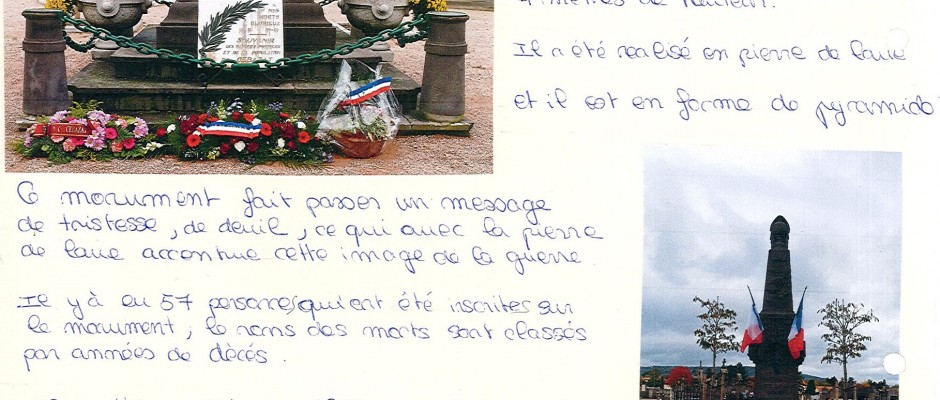 MORTS
GLORIEUX
SOUVENIR
Il a été realisé en pierre de lave
et il est en forme de pyramide
Ce monument fait passer un message
de tristesse, de deuil, ce qui avec la pierre
de lave accentue cette image de la guerre.
Il y à eu 57 personnes qui ont été inscrites sur
le monument, le noms des morts sont classés
par années de décés.